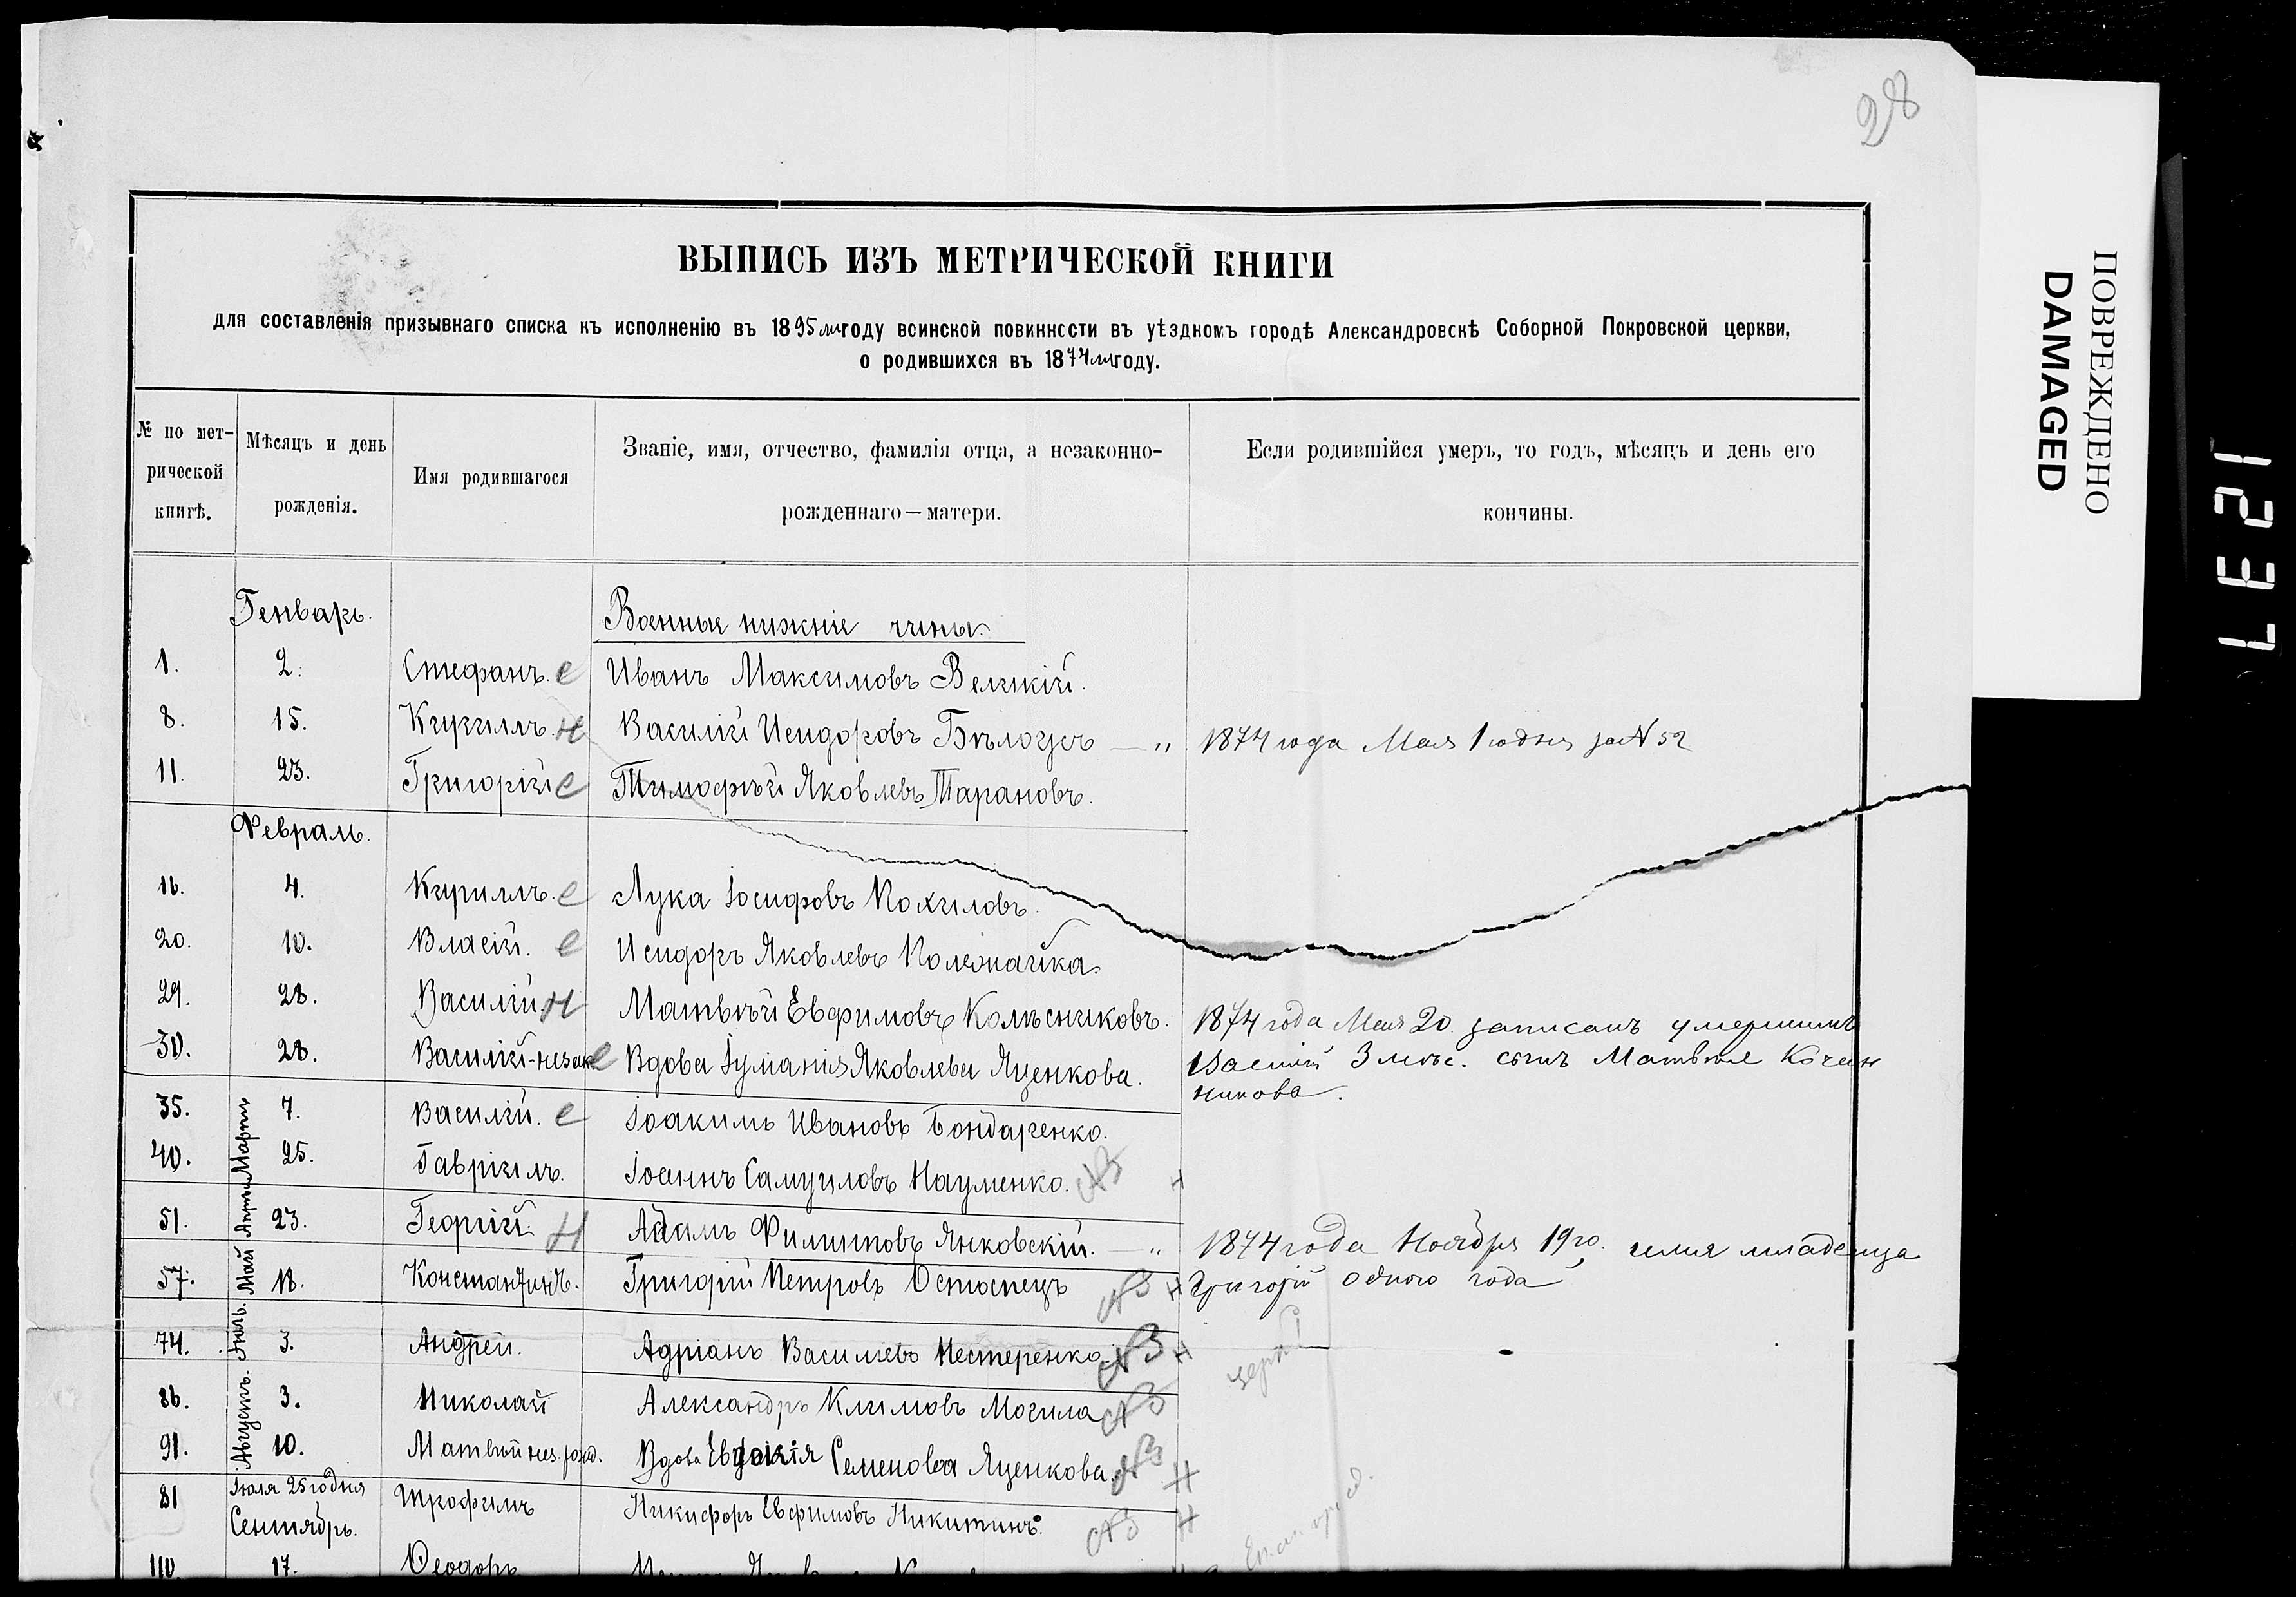 28
ВЫПИСЬ ИЗЪ МЕТРИЧЕСКОЙ КНИГИ
для составленія призывнаго списка къ исполненію въ 1895 году воинской повинности въ уѣздномъ городѣ Александровскѣ Соборной Покровской церкви,
о родившихся въ 1874 году.
№ по мет-
рической
книгѣ.
Мѣсяцъ и день
рожденія.
Имя родившагося
Званіе, имя, отчество, фамилія отца, а незаконно-
рожденнаго — матери.
Если родившійся умеръ, то годъ, мѣсяцъ и день его
кончины.
Генварь. Военные нижніе чины.
1. 2. Стефанъ. е Иванъ Максимовъ Великій.
8. 15. Кириллъ. н Василій Исидоровъ Бѣлоусъ — " 1874 года Мая 1 го дня за N 52
11. 23. Григорій е Тимофѣй Яковлевъ Тарановъ.
Февраль.
16. 4. Кириллъ. е Лука Іосифовъ Кохиловъ.
20. 10. Власій. е Исидоръ Яковлевъ
29. 28. Василій н Матвѣй Евфимовъ Колѣсниковъ. 1874 года Мая 20 записанъ умершимъ
30. 28. Василій-незак е Вдова Яковлева Яценкова. Василій 3 мѣс. сынъ Матвѣя
никова.
Мартъ
35. 7. Василій. е Іоакимъ Ивановъ Бондаренко.
40. 25. Гавріилъ. Іоаннъ Самуиловъ Науменко. н
Апрель
51. 23. Георгій. Н Адамъ Филиповъ Янковскій. — " 1874 года Ноября 19 го. имя младенца
Май
57. 18. Константинъ. Григорій Петровъ Остоспецъ н Григорій одного года
Іюль.
74. 3. Андрей. Адріанъ Василіевъ Нестеренко. н
Августъ.
86. 3. Николай Александръ Климовъ Могила
91. 10. Матвѣй нез. рожд. Вдова Евдокія Семенова Яценкова. Н
81 Іюля 25 го дня Трофимъ Никифоръ Евфимовъ Никитинъ. Н
Сентябрь.
110. 17. Ѳеодоръ
ПОВРЕЖДЕНО
DAMAGED
1237